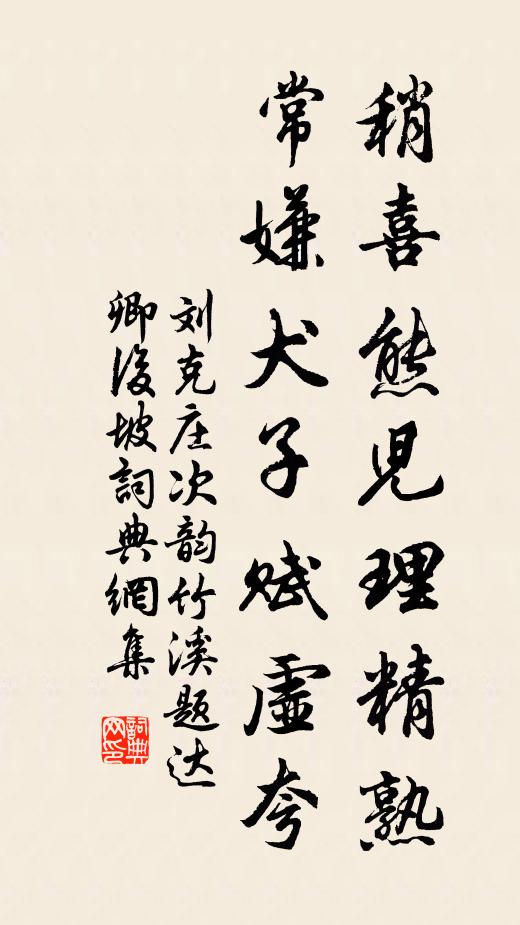 稍喜熊児理精熟
常嫌犬子赋虚夸
刘克庄次韵竹溪题达
卿後坡詞典網集
詞典网印